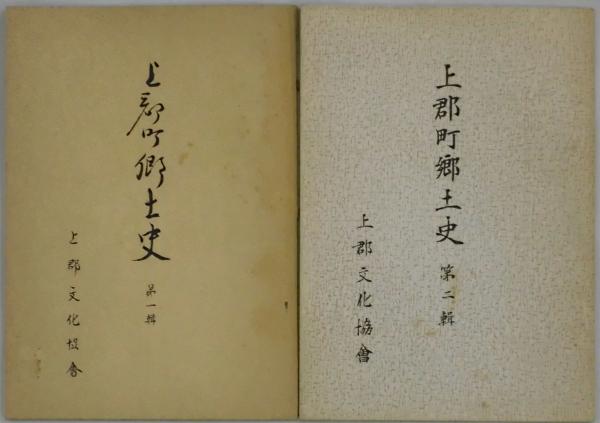 上郡町郷土史
第一輯
上郡文化協會
上郡町郷土史
第二輯
上郡文化協會